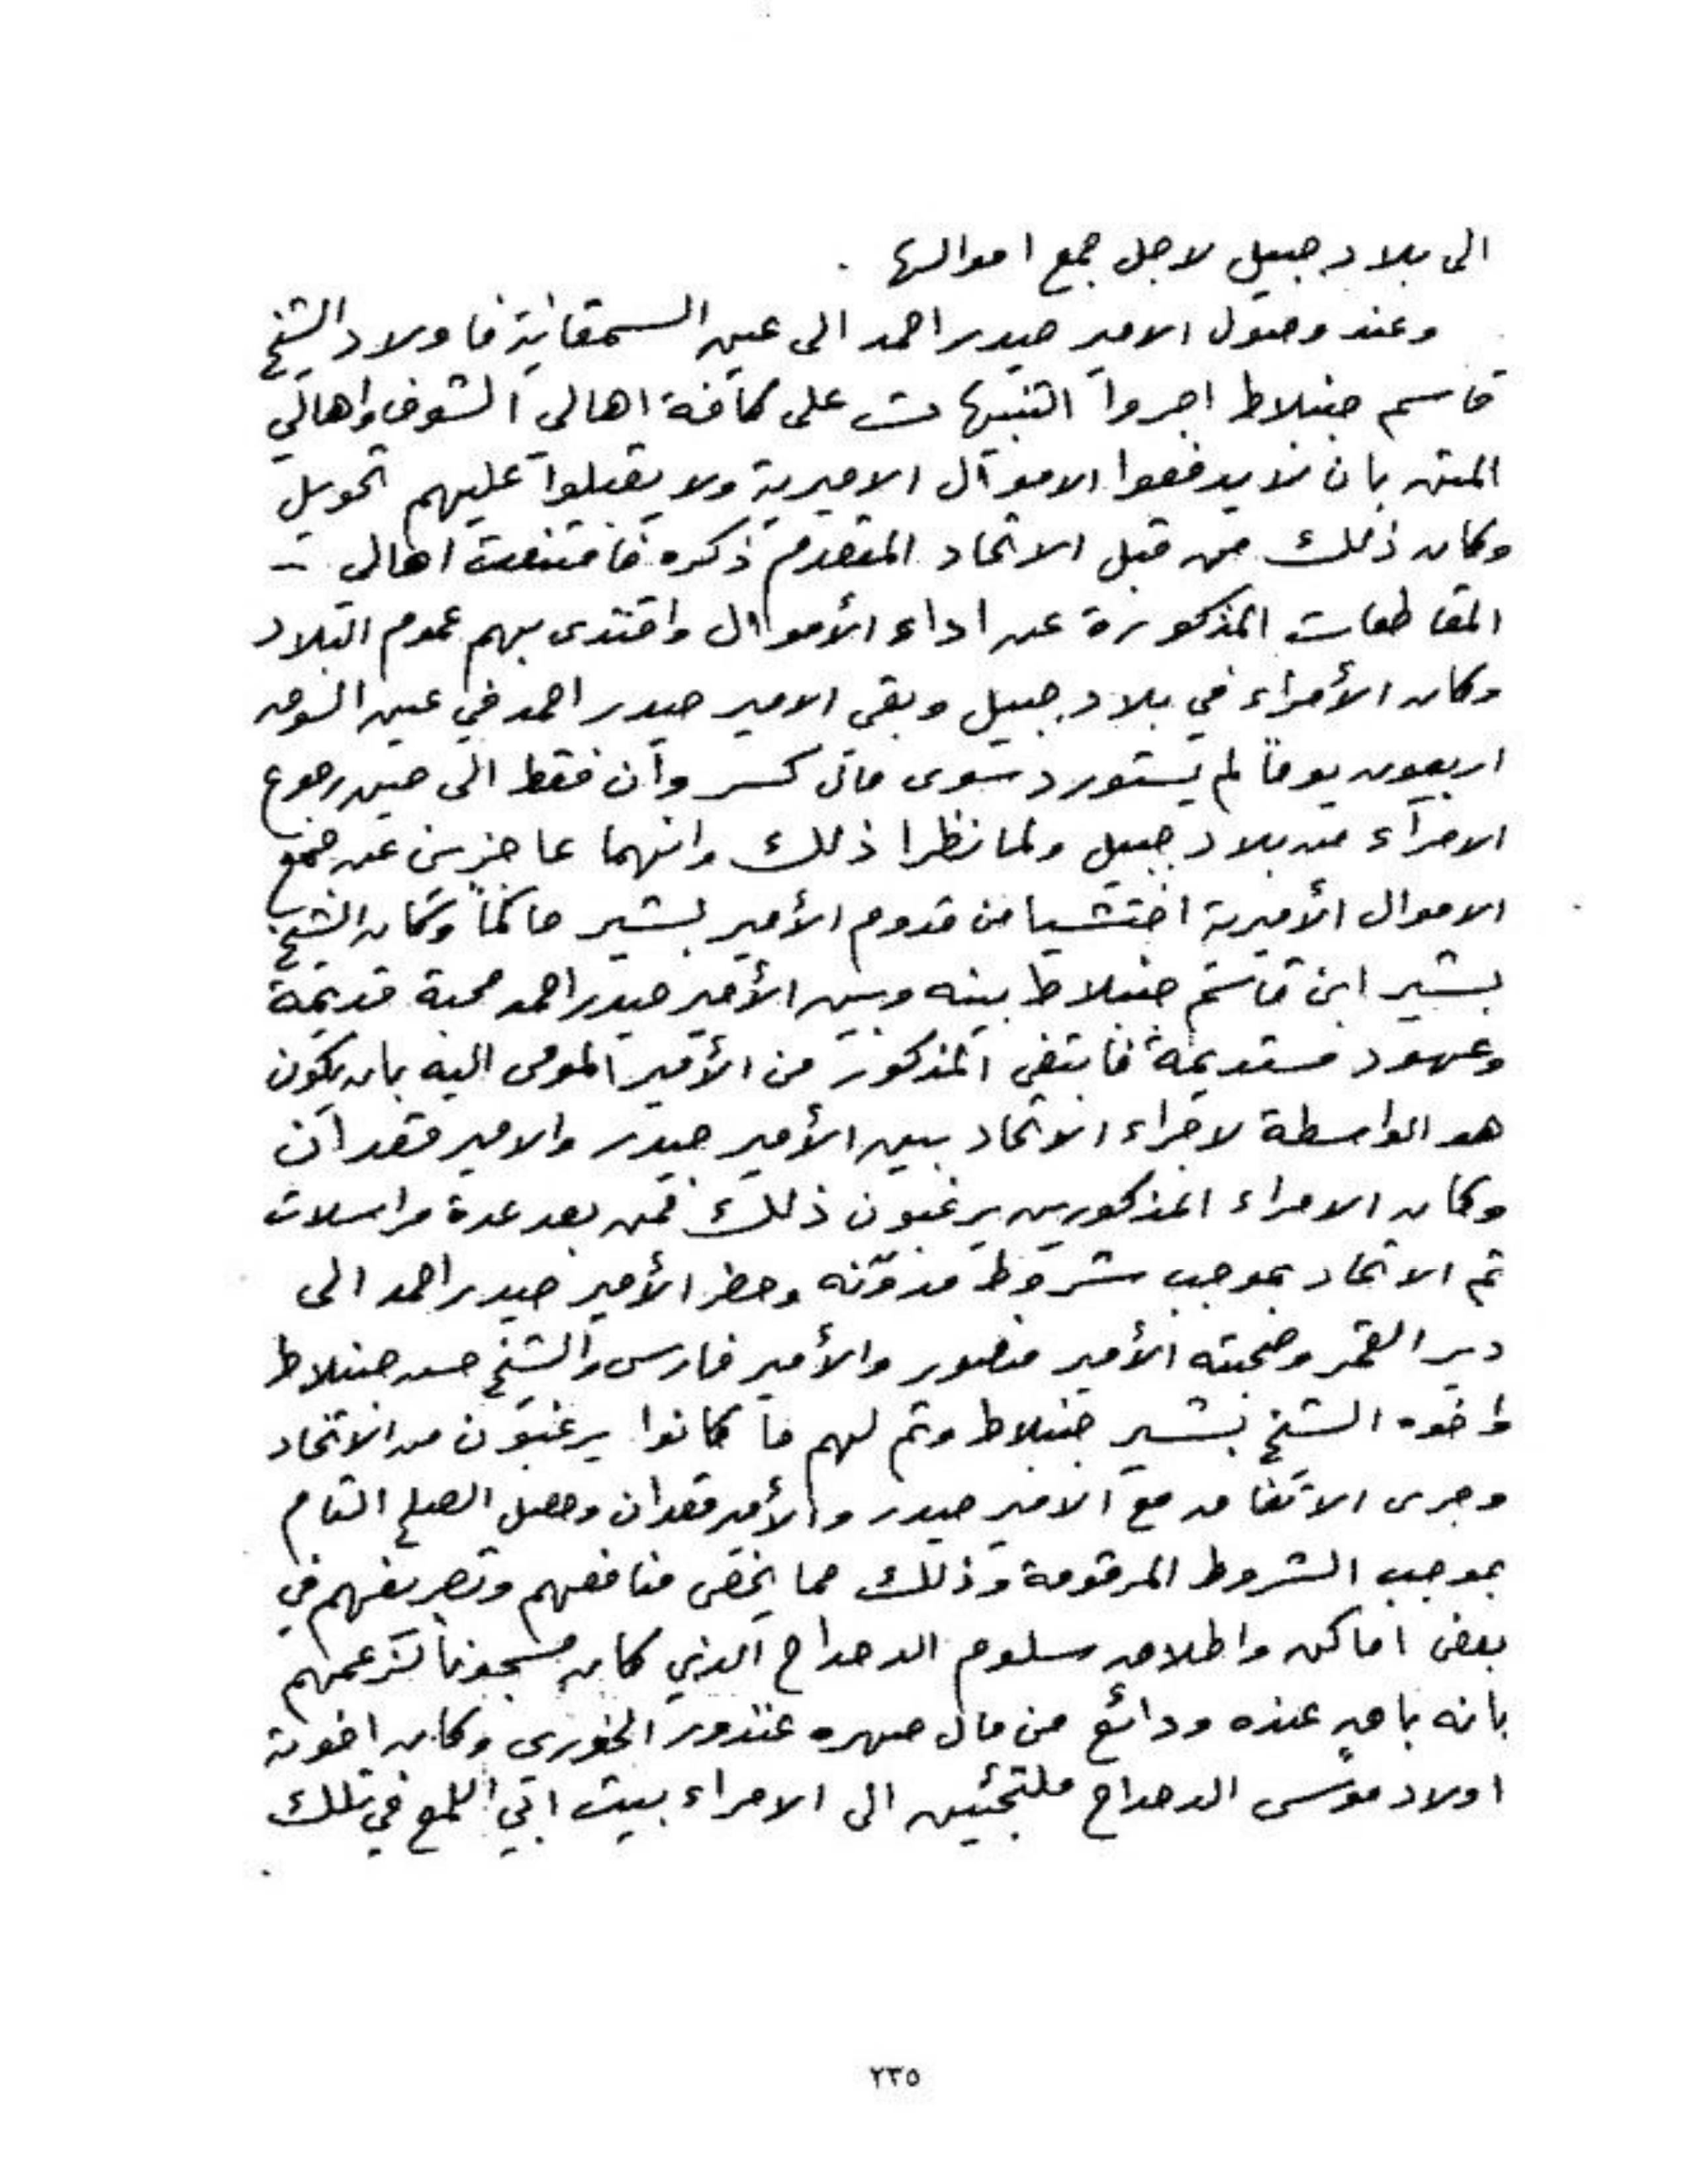 الى بلاد جبيل لاجل جمع اموالها .
وعند وصول الامير حيدر احمد الى عين السمقانية فاولاد الشيخ
قاسم جنبلاط اجروا التنبيهات على كافة اهالي الشوف واهالي
المتن بان لا يدفعوا الاموال الاميرية ولا يقبلوا عليهم تحويل
وكان ذلك من قبل الاتحاد المتقدم ذكره فامتنعت اهالي -
المقاطعات المذكورة عن اداء الأموال واقتدى بهم عموم البلاد
وكان الأمراء في بلاد جبيل وبقى الامير حيدر احمد في عين السوق
اربعون يوماً لم يستورد سوى ماتى كسروان فقط الى حين رجوع
الامراء من بلاد جبيل ولما نظرا ذلك وانهما عاجزين عن جمع
الاموال الأميرية اختشيا من قدوم الأمير بشير حاكماً وكان الشيخ
بشير ابن قاسم جنبلاط بينه وبين الأمير حيدر احمد محبة قديمة
وعهود مستديمة فابتغى المذكور من الأمير المومى اليه بان يكون
هو الواسطة لاجراء الاتحاد بين الأمير حيدر والامير قعدان
وكان الامراء المذكورين يرغبون ذلك فمن بعد عدة مراسلات
تم الاتحاد بموجب شروط مدوّنه وحضر الأمير حيدر احمد الى
دير القمر وصحبته الأمير منصور والأمير فارس والشيخ حسن جنبلاط
واخوه الشيخ بشير جنبلاط وتم لهم ما كانوا يرغبون من الاتحاد
وجرى الاتفاق مع الامير حيدر والأمير قعدان وحصل الصلح التام
بموجب الشروط المرقومة وذلك مما يخص منافعهم وتصريفهم في
بعض اماكن واطلاق سلوم الدحداح الذي كان مسجوناً لزعمهم
بانه باقٍ عنده ودائع من مال صهره غندور الخورى وكان اخوته
اولاد موسى الدحداح ملتجئين الى الامراء بيت ابي اللمع في تلك
٢٣٥